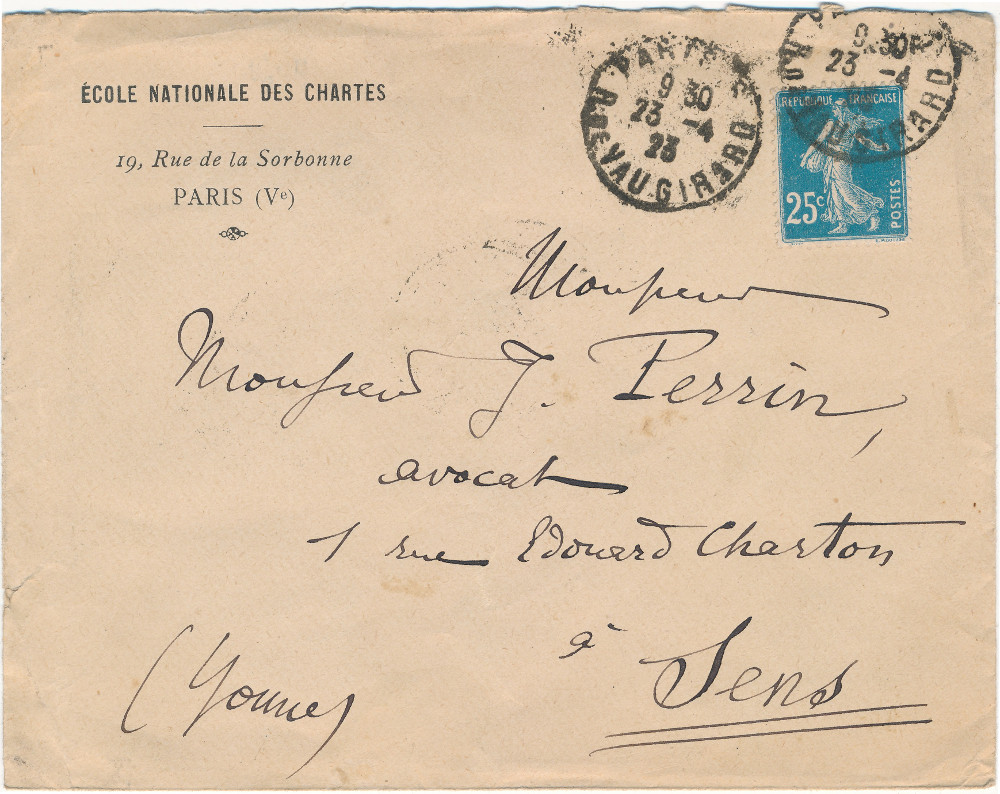 ÉCOLE NATIONALE DES CHARTES
19, Rue de la Sorbonne
PARIS (Vᵉ)
PARIS
9 30
23 -4
23
R. DE VAUGIRARD
9 30
23 -4
GIRARD
RÉPUBLIQUE FRANÇAISE
25c
POSTES
Monsieur
Monsieur J. Perrin,
avocat
1 rue Edouard Charton
à Sens
(Yonne)